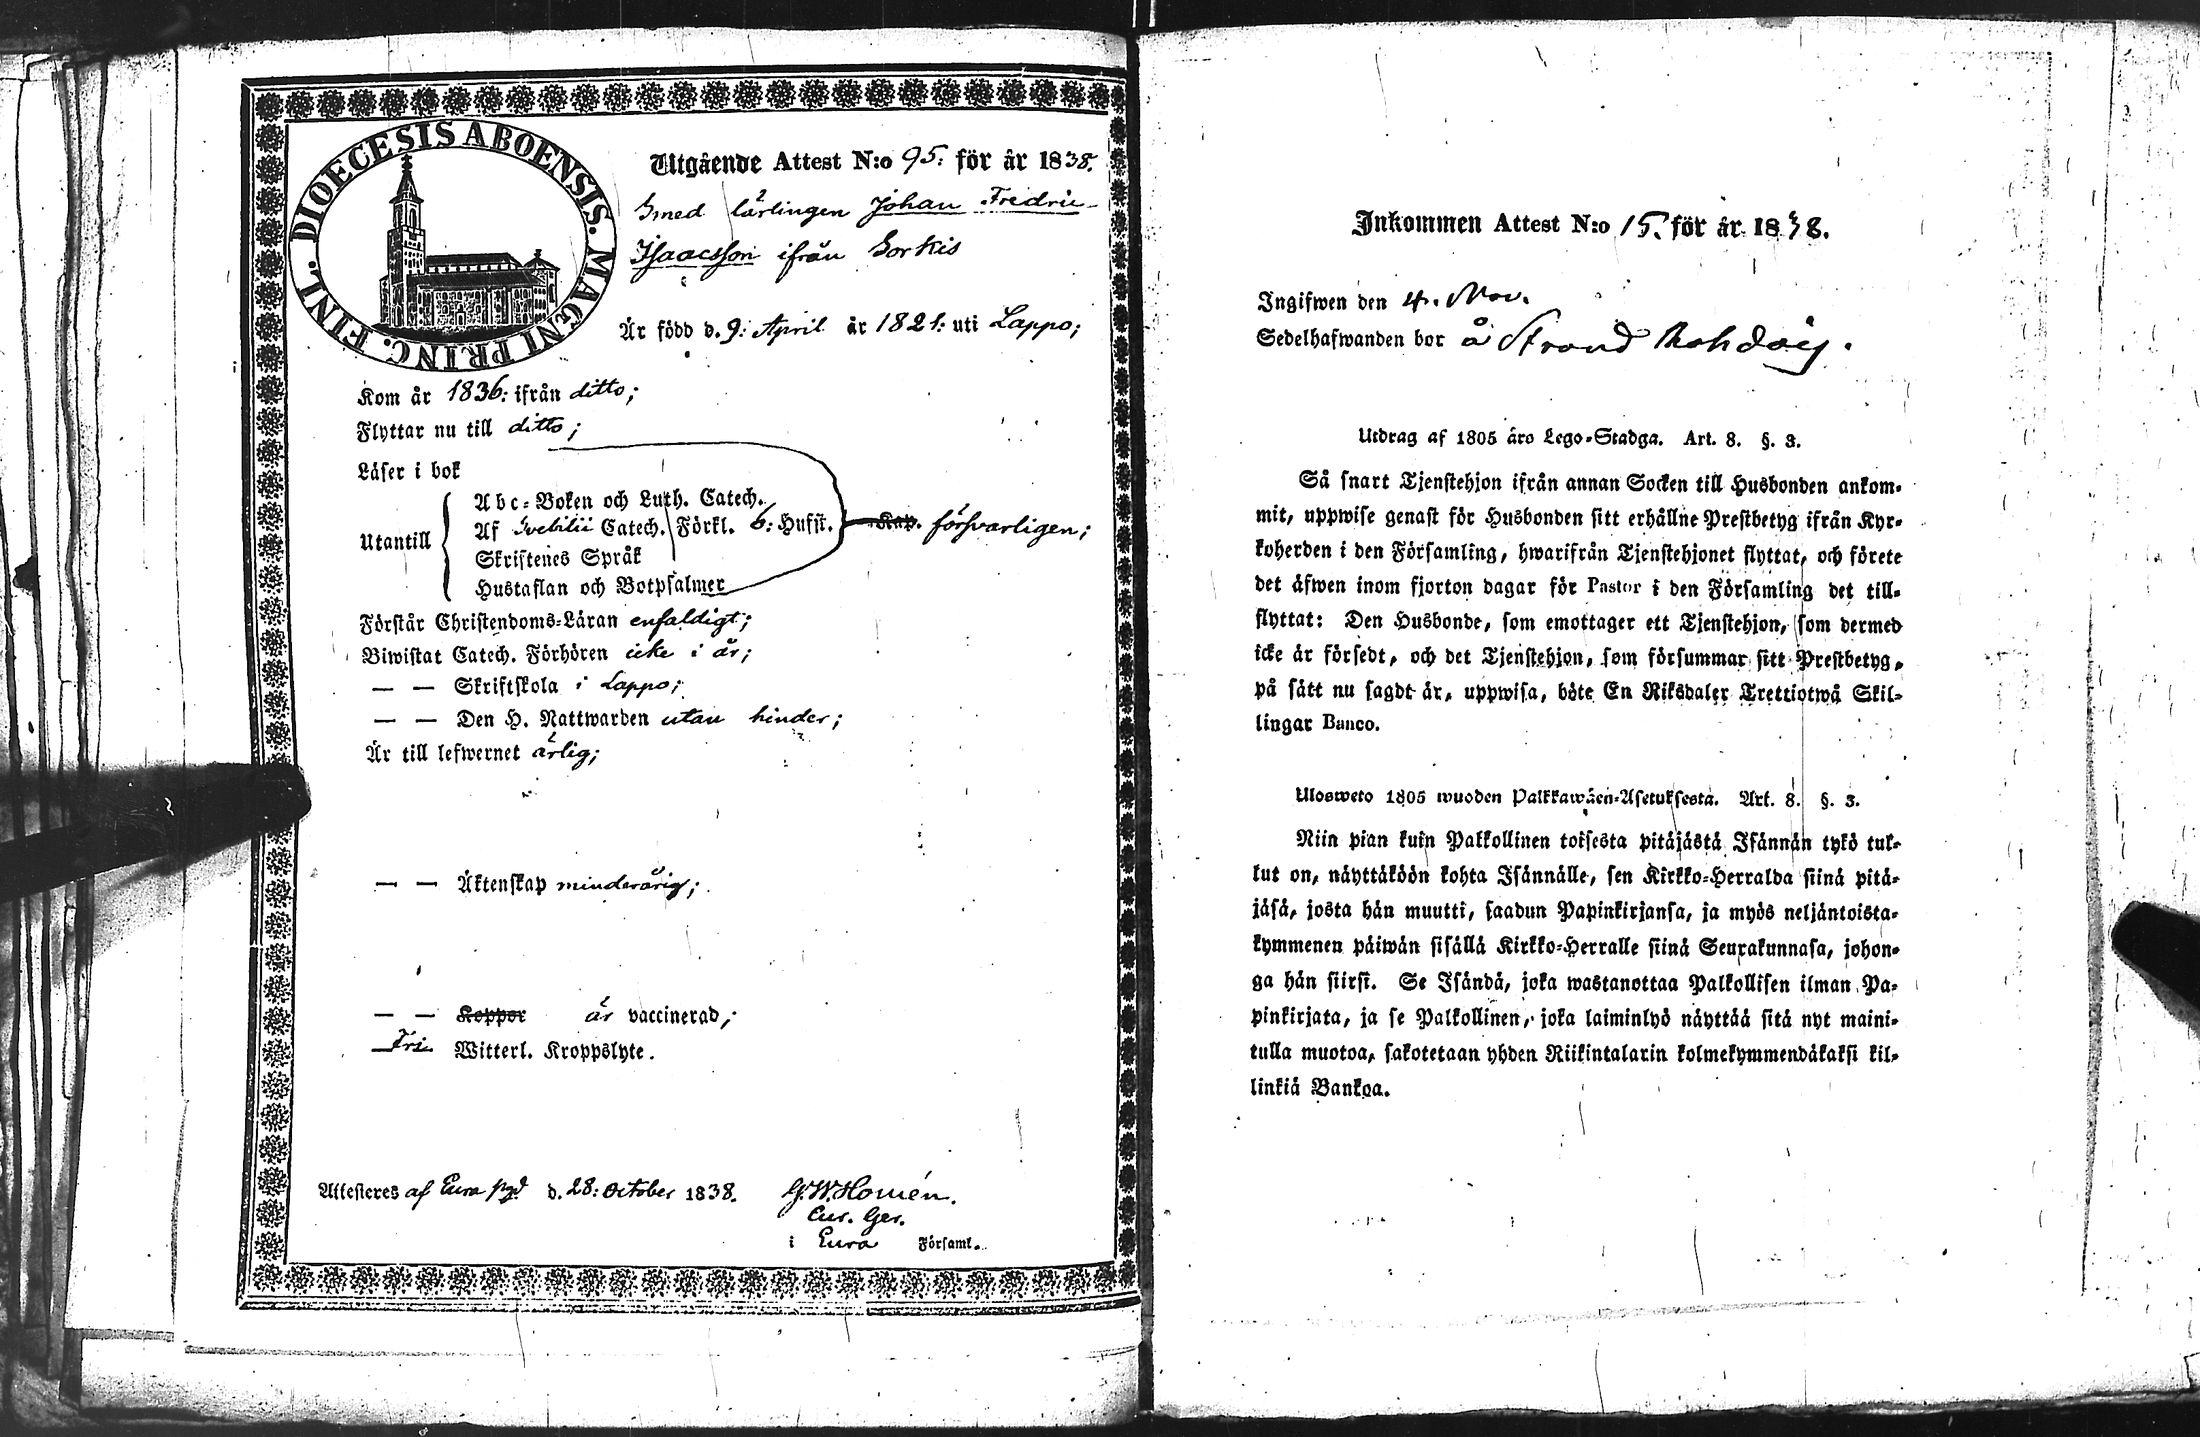 DIOECESIS ABOENSIS. MAGNI PRINC. FINL.
Utgående Attest N:o 95: för år 1838.
Smed lärlingen Johan Fredric
Isaacsson ifrån Sorkis
Är född d. 9: April år 1821: uti Lappo;
Kom år 1836: ifrån ditto;
Flyttar nu till ditto;
Läser i bok
Utantill
Abc-Boken och Luth. Catech.
Af Svebilii Catech. Förkl. 6: Hufst. Kap. försvarligen;
Skriftenes Språk
Hustaflan och Botpsalmer
Förstår Christendoms-Läran enfaldigt;
Biwistat Catech. Förhören icke i år;
— — Skriftskola i Lappo;
— — Den H. Nattwarden utan hinder;
Är till lefwernet ärlig;
— — Äktenskap minderårig;
— — Koppor är vaccinerad;
Fri Witterl. Kroppslyte.
Attesteres af Eura d. 28: October 1838. G.W. Homén.
Cur. Ger.
i Eura Församl.
Inkommen Attest N:o 15. för år 1838.
Ingifwen den 4. Nov.
Sedelhafwanden bor å Strand
Utdrag af 1805 års Lego-Stadga. Art. 8. §. 3.
Så snart Tjenstehjon ifrån annan Socken till Husbonden ankom-
mit, uppwise genast för Husbonden sitt erhållne Prestbetyg ifrån Kyr-
koherden i den Församling, hwarifrån Tjenstehjonet flyttat, och förete
det äfwen inom fjorton dagar för Pastor i den Församling det till-
flyttat: Den Husbonde, som emottager ett Tjenstehjon, som dermed
icke är försedt, och det Tjenstehjon, som försummar sitt Prestbetyg,
på sätt nu sagdt är, uppwisa, böte En Riksdaler Trettiotwå Skil-
lingar Banco.
Ulosweto 1805 wuoden Palkkawäen-Asetuksesta. Art. 8. §. 3.
Niin pian kuin Palkollinen toisesta pitäjästä Isännän tykö tul-
lut on, näyttäköön kohta Isännälle, sen Kirkko-Herralda siinä pitä-
jäsä, josta hän muutti, saadun Papinkirjansa, ja myös neljäntoista-
kymmenen päiwän sisällä Kirkko-Herralle siinä Seurakunnasa, johon-
ga hän siirsi. Se Isändä, joka wastanottaa Palkollisen ilman Pa-
pinkirjata, ja se Palkollinen, joka laiminlyö näyttää sitä nyt maini-
tulla muotoa, sakotetaan yhden Riikintalarin kolmekymmendäkaksi kil-
linkiä Bankoa.